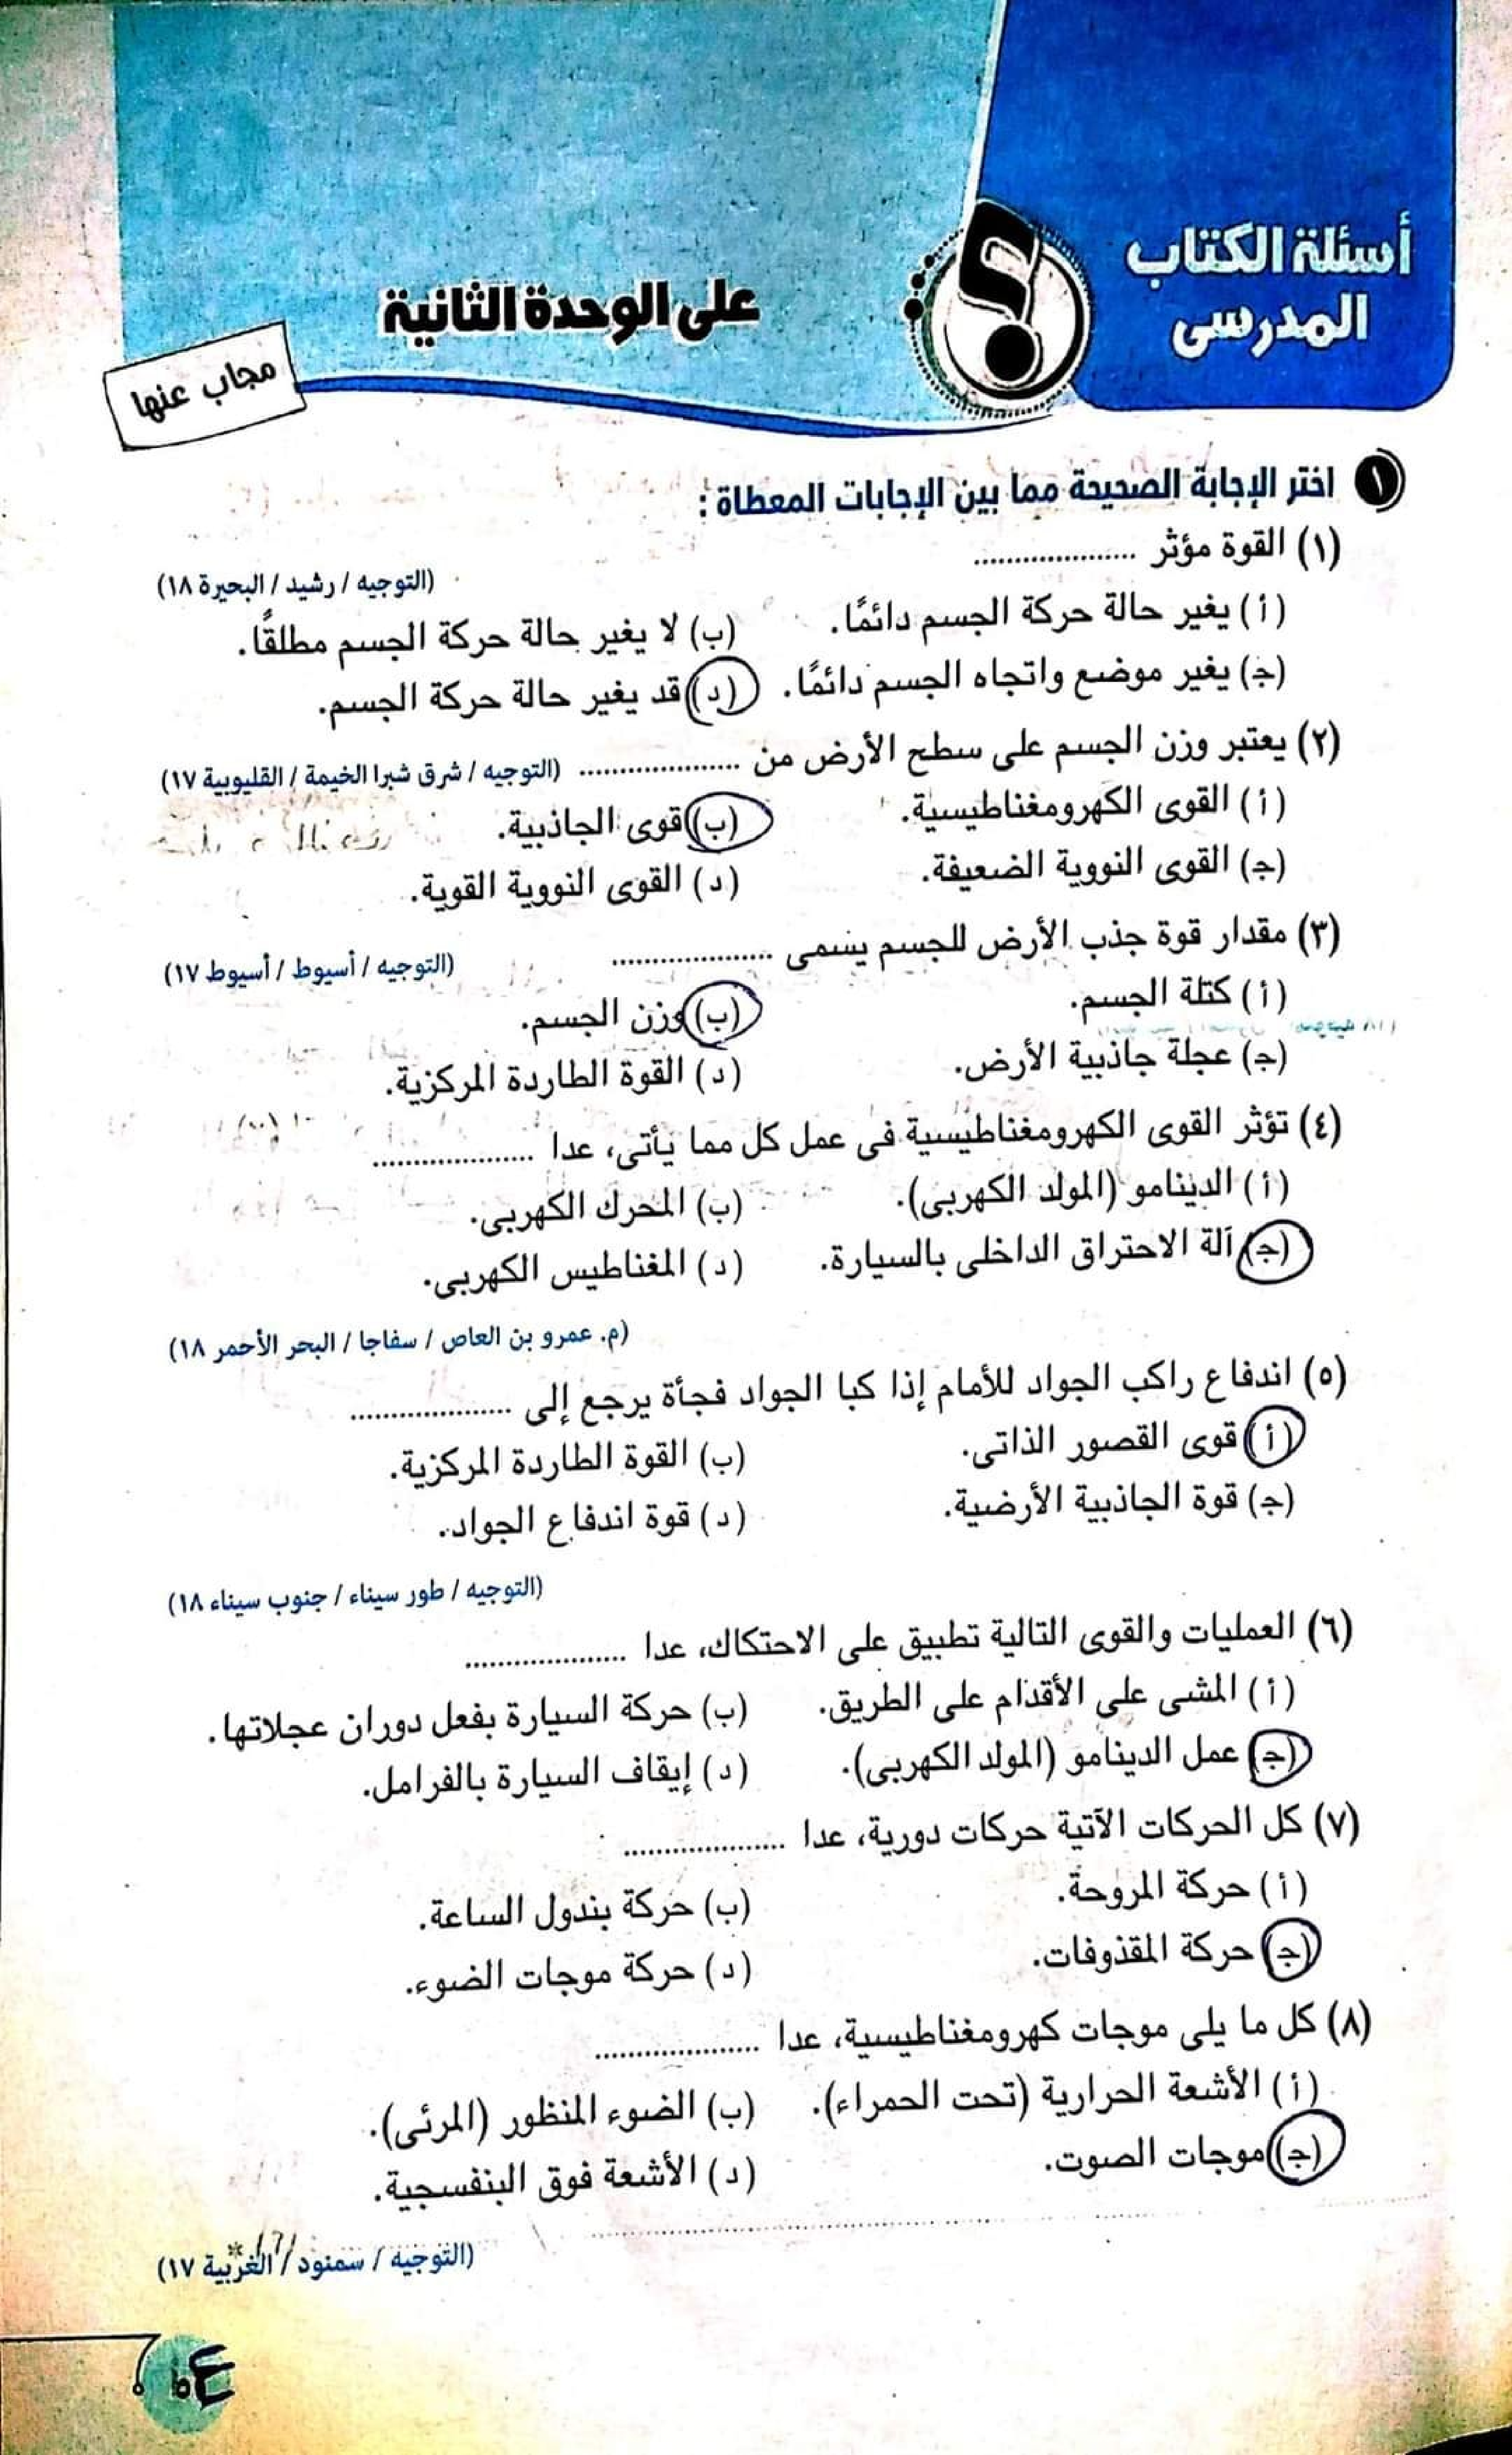 أسئلة الكتاب
المدرسى
على الوحدة الثانية
مجاب عنها
١ اختر الإجابة الصحيحة مما بين الإجابات المعطاة :
(١) القوة مؤثر ....................
(التوجيه / رشيد / البحيرة ١٨)
(أ) يغير حالة حركة الجسم دائمًا. (ب) لا يغير حالة حركة الجسم مطلقًا.
(جـ) يغير موضع واتجاه الجسم دائمًا. (د) قد يغير حالة حركة الجسم.
(٢) يعتبر وزن الجسم على سطح الأرض من .................... (التوجيه / شرق شبرا الخيمة / القليوبية ١٧)
(أ) القوى الكهرومغناطيسية. (ب) قوى الجاذبية.
(جـ) القوى النووية الضعيفة. (د) القوى النووية القوية.
(٣) مقدار قوة جذب الأرض للجسم يسمى ....................
(التوجيه / أسيوط / أسيوط ١٧)
(أ) كتلة الجسم. (ب) وزن الجسم.
(جـ) عجلة جاذبية الأرض. (د) القوة الطاردة المركزية.
(٤) تؤثر القوى الكهرومغناطيسية فى عمل كل مما يأتى، عدا ....................
(أ) الدينامو (المولد الكهربى). (ب) المحرك الكهربى.
(جـ) آلة الاحتراق الداخلى بالسيارة. (د) المغناطيس الكهربى.
(م. عمرو بن العاص / سفاجا / البحر الأحمر ١٨)
(٥) اندفاع راكب الجواد للأمام إذا كبا الجواد فجأة يرجع إلى ....................
(أ) قوى القصور الذاتى. (ب) القوة الطاردة المركزية.
(جـ) قوة الجاذبية الأرضية. (د) قوة اندفاع الجواد.
(التوجيه / طور سيناء / جنوب سيناء ١٨)
(٦) العمليات والقوى التالية تطبيق على الاحتكاك، عدا ....................
(أ) المشى على الأقدام على الطريق. (ب) حركة السيارة بفعل دوران عجلاتها.
(جـ) عمل الدينامو (المولد الكهربى). (د) إيقاف السيارة بالفرامل.
(٧) كل الحركات الآتية حركات دورية، عدا ....................
(أ) حركة المروحة. (ب) حركة بندول الساعة.
(جـ) حركة المقذوفات. (د) حركة موجات الضوء.
(٨) كل ما يلى موجات كهرومغناطيسية، عدا ....................
(أ) الأشعة الحرارية (تحت الحمراء). (ب) الضوء المنظور (المرئى).
(جـ) موجات الصوت. (د) الأشعة فوق البنفسجية.
(التوجيه / سمنود / الغربية ١٧)